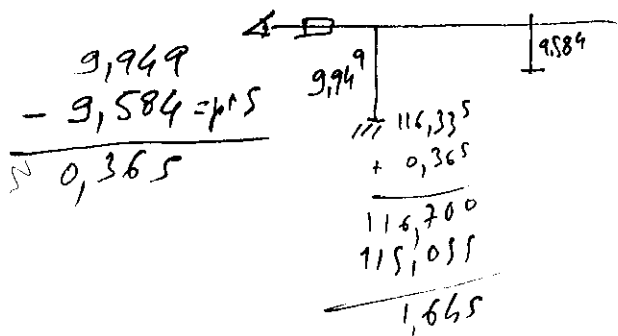 9,949
- 9,584 = pt5
0,365
9,949
9,584
116,335
+ 0,365
116,700
115,055
1,645